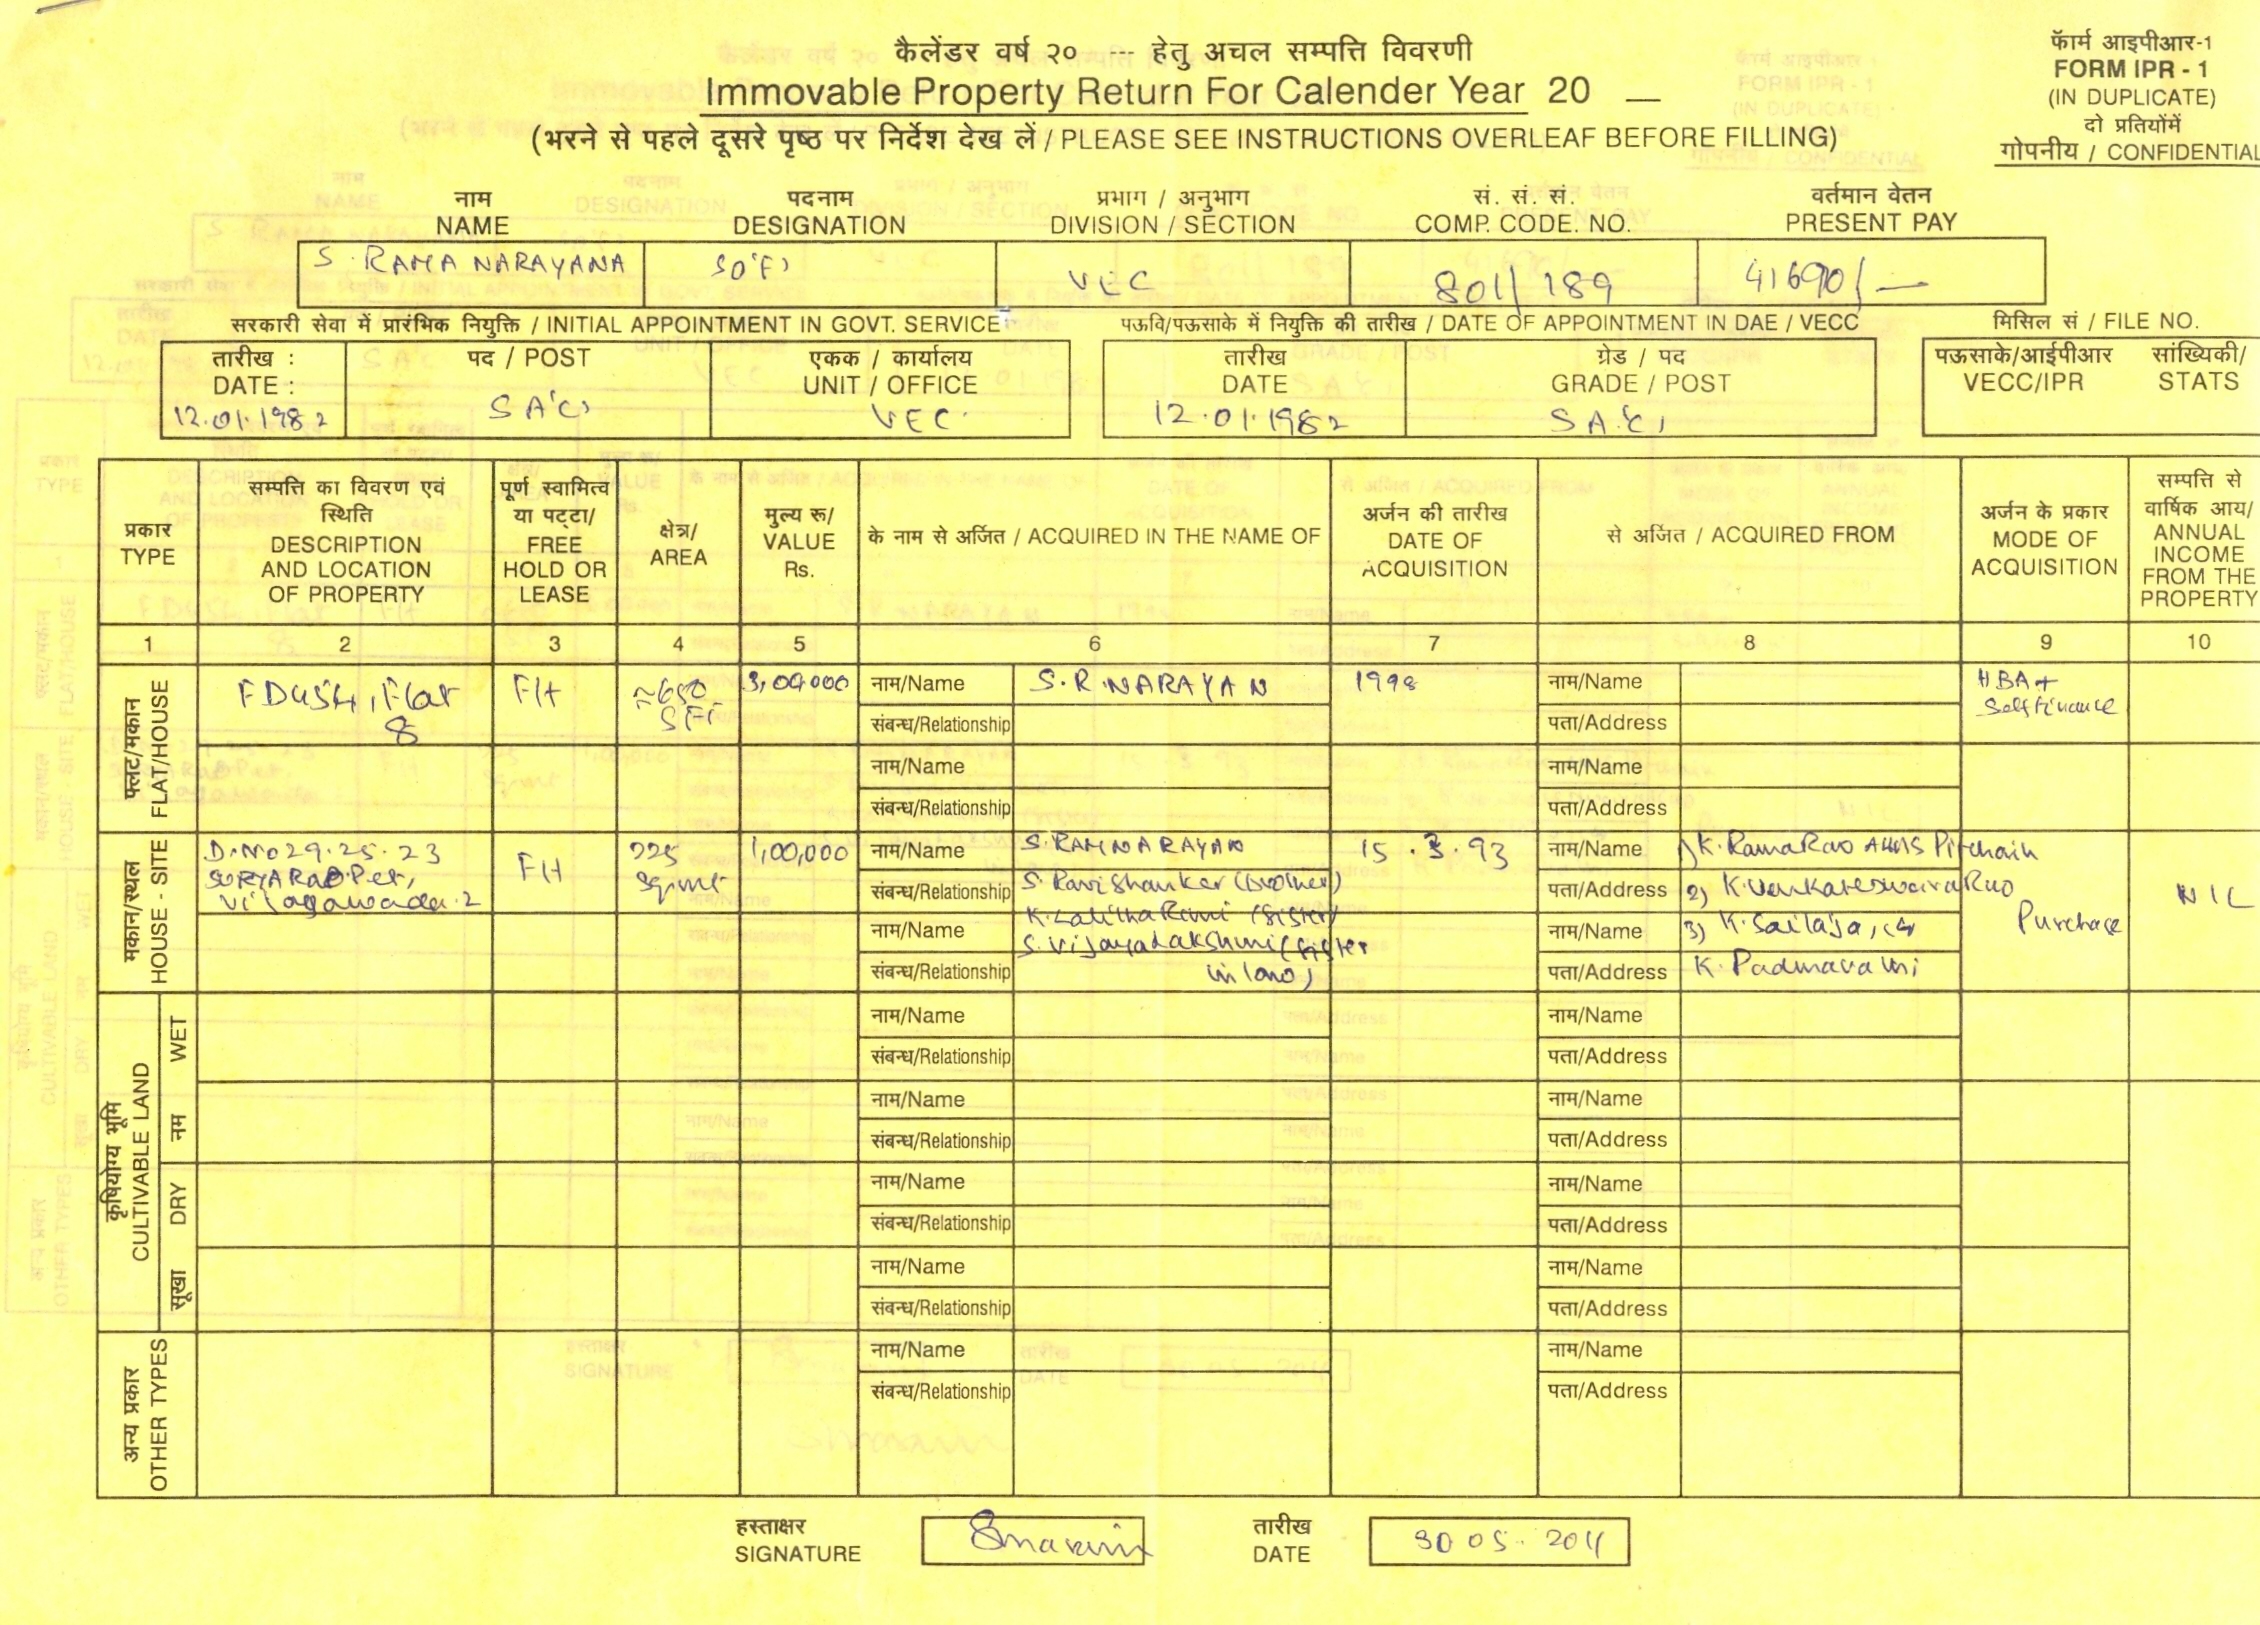 कैलेंडर वर्ष २० --- हेतु अचल सम्पत्ति विवरणी
Immovable Property Return For Calender Year 20 __
(भरने से पहले दूसरे पृष्ठ पर निर्देश देख लें / PLEASE SEE INSTRUCTIONS OVERLEAF BEFORE FILLING)
फॅार्म आइपीआर-1
FORM IPR - 1
(IN DUPLICATE)
दो प्रतियोंमें
गोपनीय / CONFIDENTIAL
नाम पदनाम प्रभाग / अनुभाग सं. सं. सं. वर्तमान वेतन
NAME DESIGNATION DIVISION / SECTION COMP. CODE. NO. PRESENT PAY
S. RAMA NARAYANA SO'F' VEC 801/189 41690/-
सरकारी सेवा में प्रारंभिक नियुक्ति / INITIAL APPOINTMENT IN GOVT. SERVICE पऊवि/पऊसाके में नियुक्ति की तारीख / DATE OF APPOINTMENT IN DAE / VECC मिसिल सं / FILE NO.
तारीख : पद / POST एकक / कार्यालय तारीख ग्रेड / पद पऊसाके/आईपीआर सांख्यिकी/
DATE : UNIT / OFFICE DATE GRADE / POST VECC/IPR STATS
12.01.1982 SA'C' VEC. 12.01.1982 SA'C'
प्रकार
TYPE
सम्पत्ति का विवरण एवं
स्थिति
DESCRIPTION
AND LOCATION
OF PROPERTY
पूर्ण स्वामित्व
या पट्टा/
FREE
HOLD OR
LEASE
क्षेत्र/
AREA
मुल्य रू/
VALUE
Rs.
के नाम से अर्जित / ACQUIRED IN THE NAME OF
अर्जन की तारीख
DATE OF
ACQUISITION
से अर्जित / ACQUIRED FROM
अर्जन के प्रकार
MODE OF
ACQUISITION
सम्पत्ति से
वार्षिक आय/
ANNUAL
INCOME
FROM THE
PROPERTY
1 2 3 4 5 6 7 8 9 10
फ्लैट/मकान
FLAT/HOUSE
FD454, Flat
8
F/H
≈650
SFT
3,00,000
नाम/Name S.R.NARAYAN
संबन्ध/Relationship
1998
नाम/Name
पता/Address
HBA+
Self Finance
नाम/Name
संबन्ध/Relationship
नाम/Name
पता/Address
मकान/स्थल
HOUSE - SITE
D.No 29.25.23
SURYARAOPet,
Vijayawada.2
F/H
225
sqmt
1,00,000
नाम/Name S.RAMNARAYAN
संबन्ध/Relationship S. Ravi Shanker (brother)
K. Lalitha Rani (sister)
नाम/Name
S. Vijayalakshmi (sister
संबन्ध/Relationship in law)
15.3.93
नाम/Name 1) K. Rama Rao Pitchaiah
पता/Address 2) K. Venkateswara Rao
नाम/Name 3) K. Sailaja,
पता/Address K. Padmavathi
Purchase
NIL
कृषियोग्य भूमि
CULTIVABLE LAND
नम WET
नाम/Name
संबन्ध/Relationship
नाम/Name
पता/Address
नाम/Name
संबन्ध/Relationship
नाम/Name
पता/Address
सूखा DRY
नाम/Name
संबन्ध/Relationship
नाम/Name
पता/Address
नाम/Name
संबन्ध/Relationship
नाम/Name
पता/Address
अन्य प्रकार
OTHER TYPES
नाम/Name
संबन्ध/Relationship
नाम/Name
पता/Address
हस्ताक्षर
SIGNATURE
तारीख
DATE
30 05. 2011